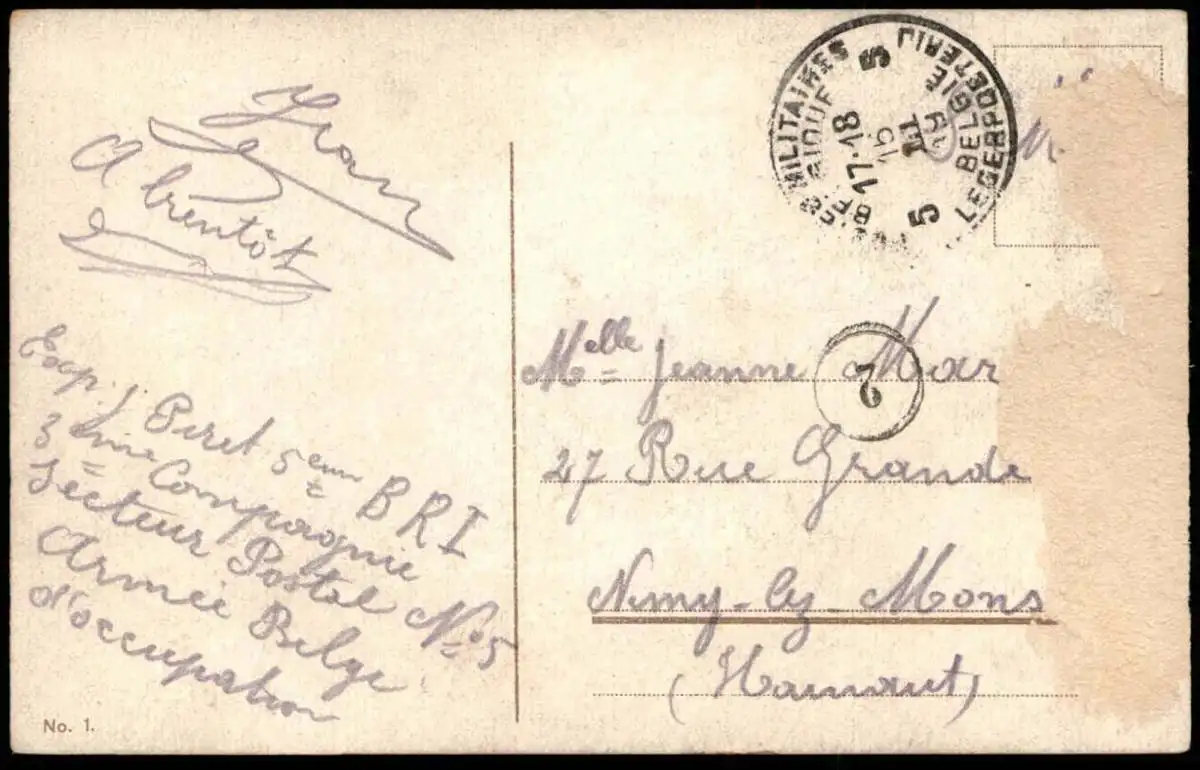 Jean
A bientôt
Exp. J. Piret 5eme BRI
3eme Compagnie
Secteur Postal No 5
Armée Belge
d'occupation
No. 1.
MILITAIRES
BELGIQUE
5
17-18
15
III
19
5
BELGIE
LEGERPOSTERIJ
M.
2
Melle Jeanne Mar
27 Rue Grande
Nimy-lez-Mons
(Hainaut)